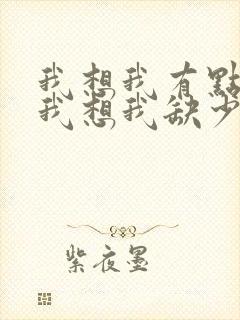 我想我有點
我想我缺少
紫夜墨